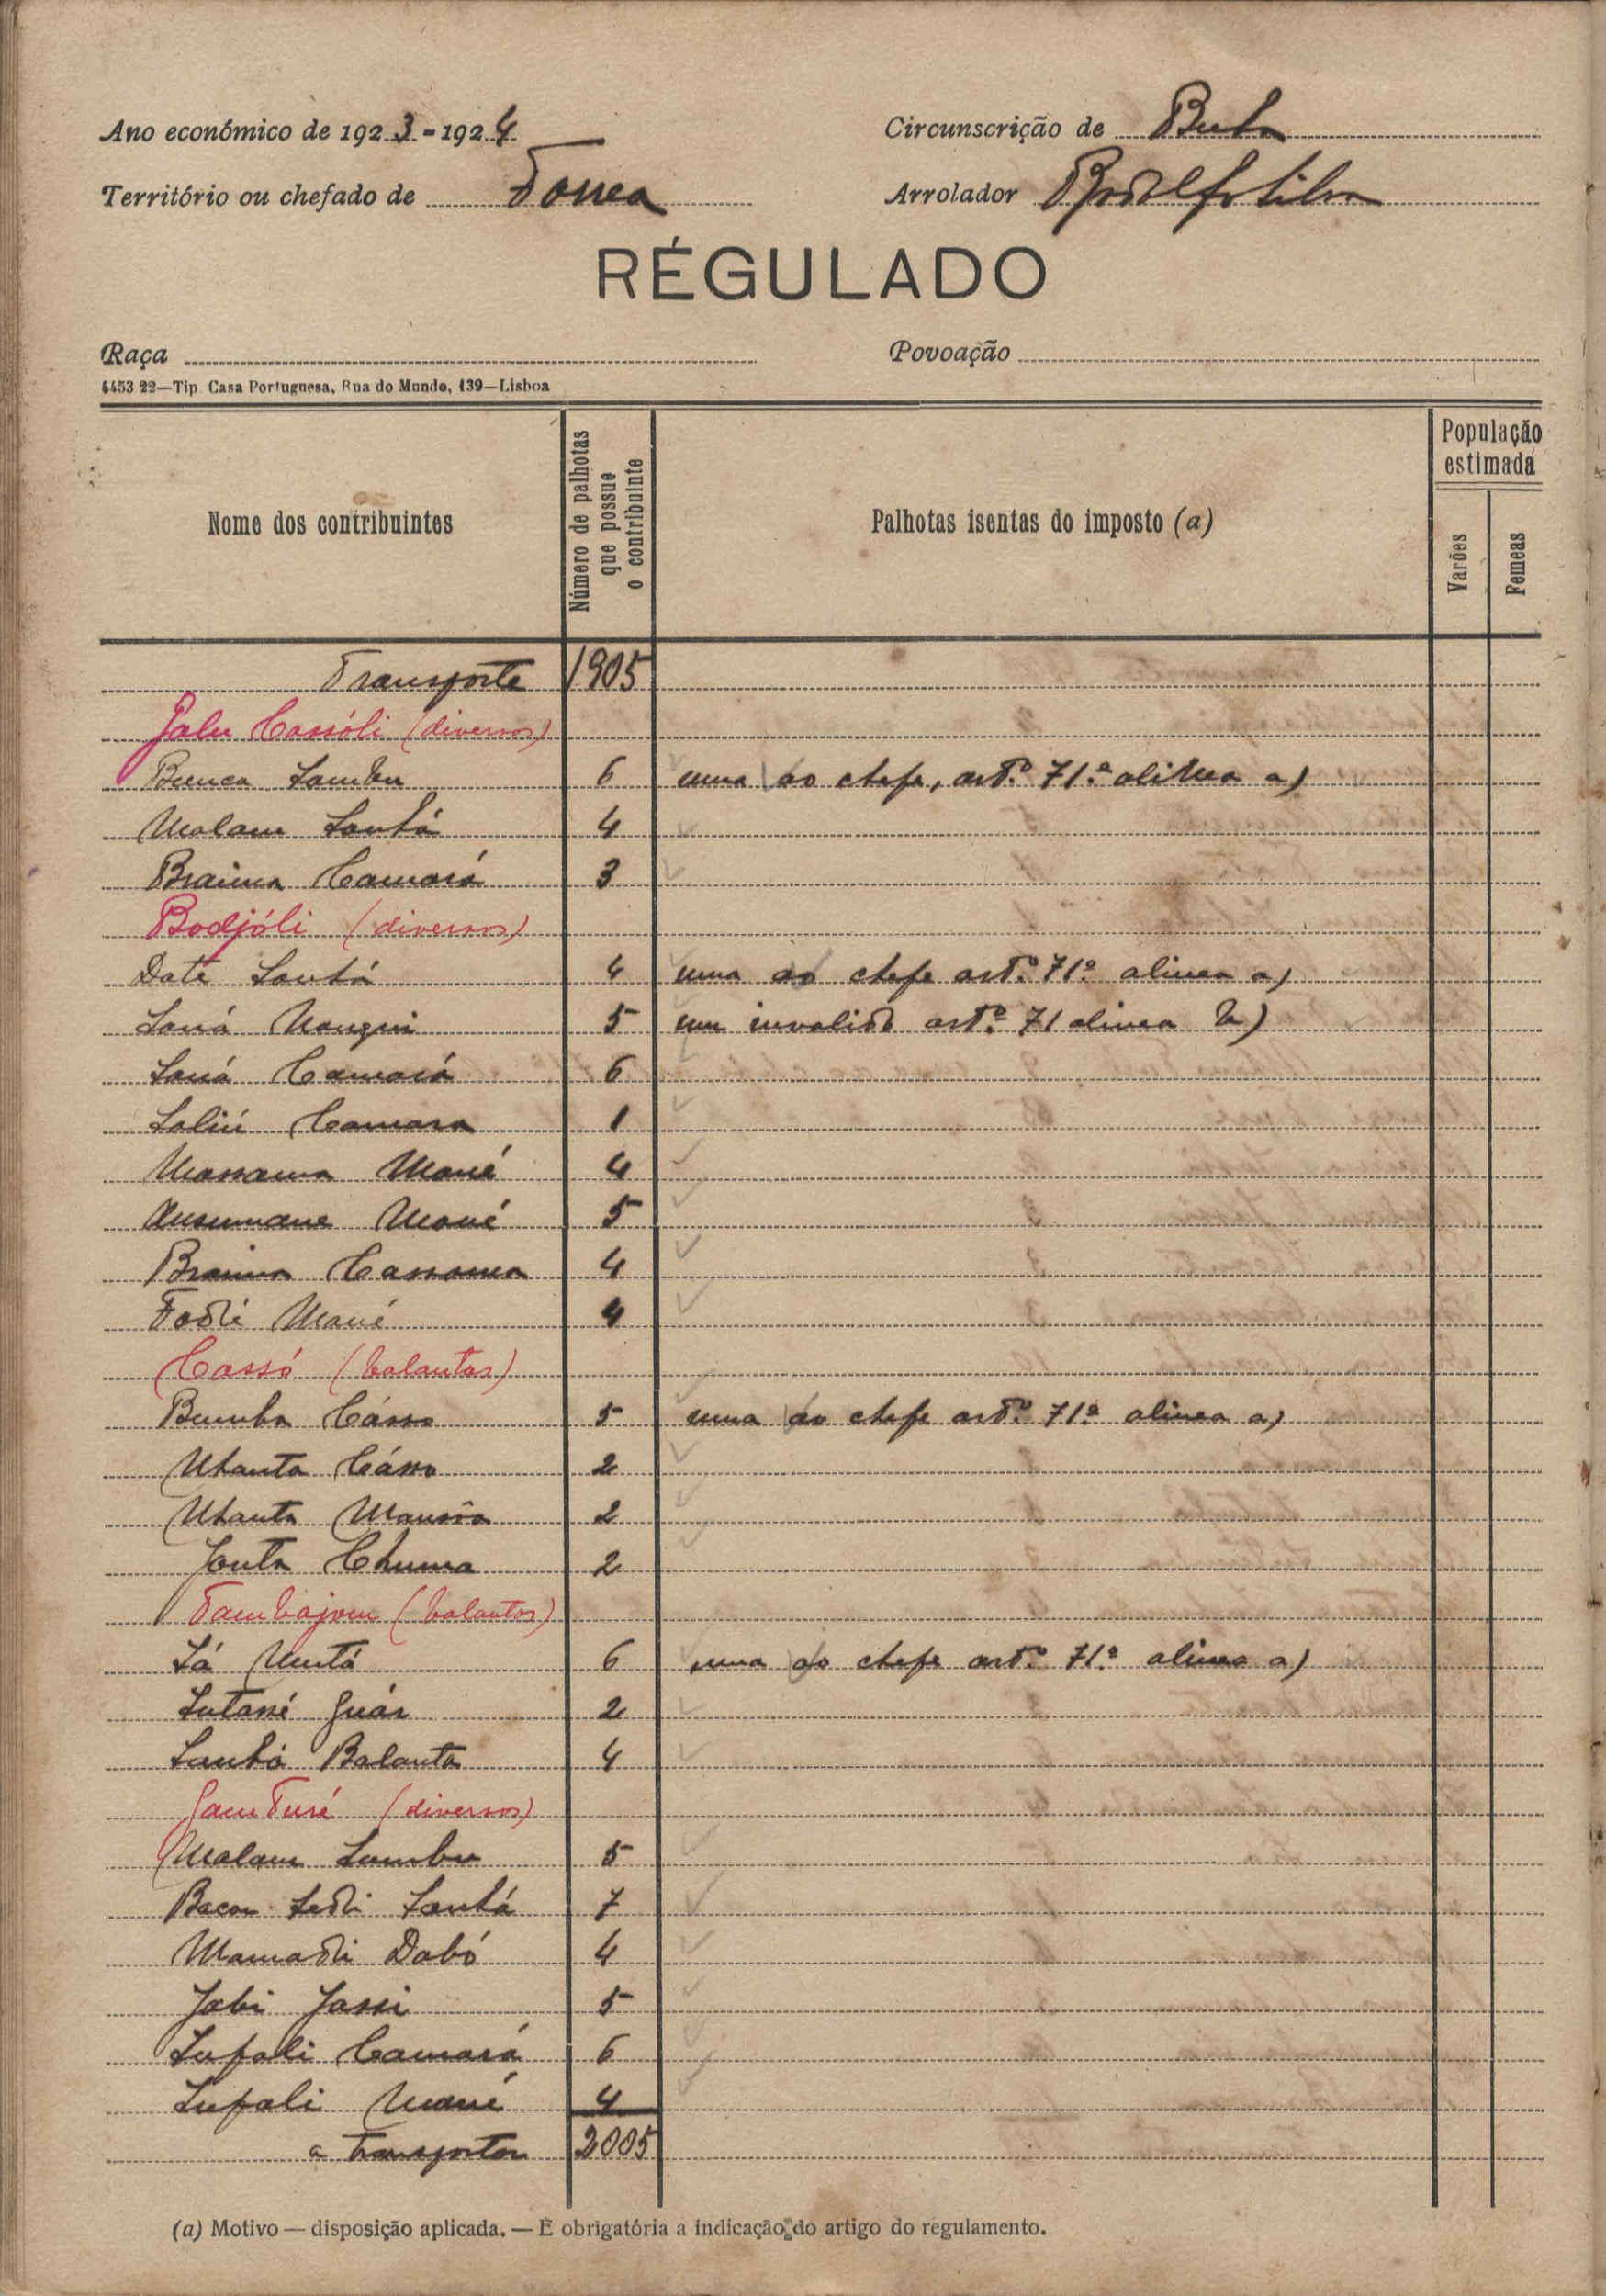 Ano económico de 1923-1924
Circunscrição de Buba
Território ou chefado de
Arrolador Rodolfo Silva
RÉGULADO
Raça
Povoação
4453 22—Tip. Casa Portuguesa, Rua do Mundo, 139—Lisboa
Nome dos contribuintes
Número de palhotas que possue o contribuinte
Palhotas isentas do imposto (a)
População estimada
Varões
Femeas
Transporte 1905
(diversos)
Sambu 6 uma ao chefe, artº. 71.ª alinea a)
Malam Sanhá 4
Braima Camará 3
Bodjóli (diversos)
Date Sanhá 4 uma ao chefe artº. 71º alinea a)
Saná 5 um invalido artº. 71 alinea b)
Saná Camará 6
Saliú Camara 1
Massama Mané 4
Ansumane Mané 5
Braima Cassama 4
Fodé Mané 4
Cassó (balantas)
Bumba Cásso 5 uma ao chefe artº. 71ª alinea a)
Nhanta Cásso 2
Nhanta Mansôa 2
Chuma 2
Tambajom (balantas)
6 uma ao chefe artº. 71.ª alinea a)
2
Sanhá Balanta 4
Jam Turé (diversos)
Malam Sambu 5
Bacar Sedi Sanhá 7
Mamadi Dabó 4
Jabi Jassi 5
Lufali Camará 6
Lufali Mané 4
a transportar 2005
(a) Motivo — disposição aplicada. — É obrigatória a indicação do artigo do regulamento.